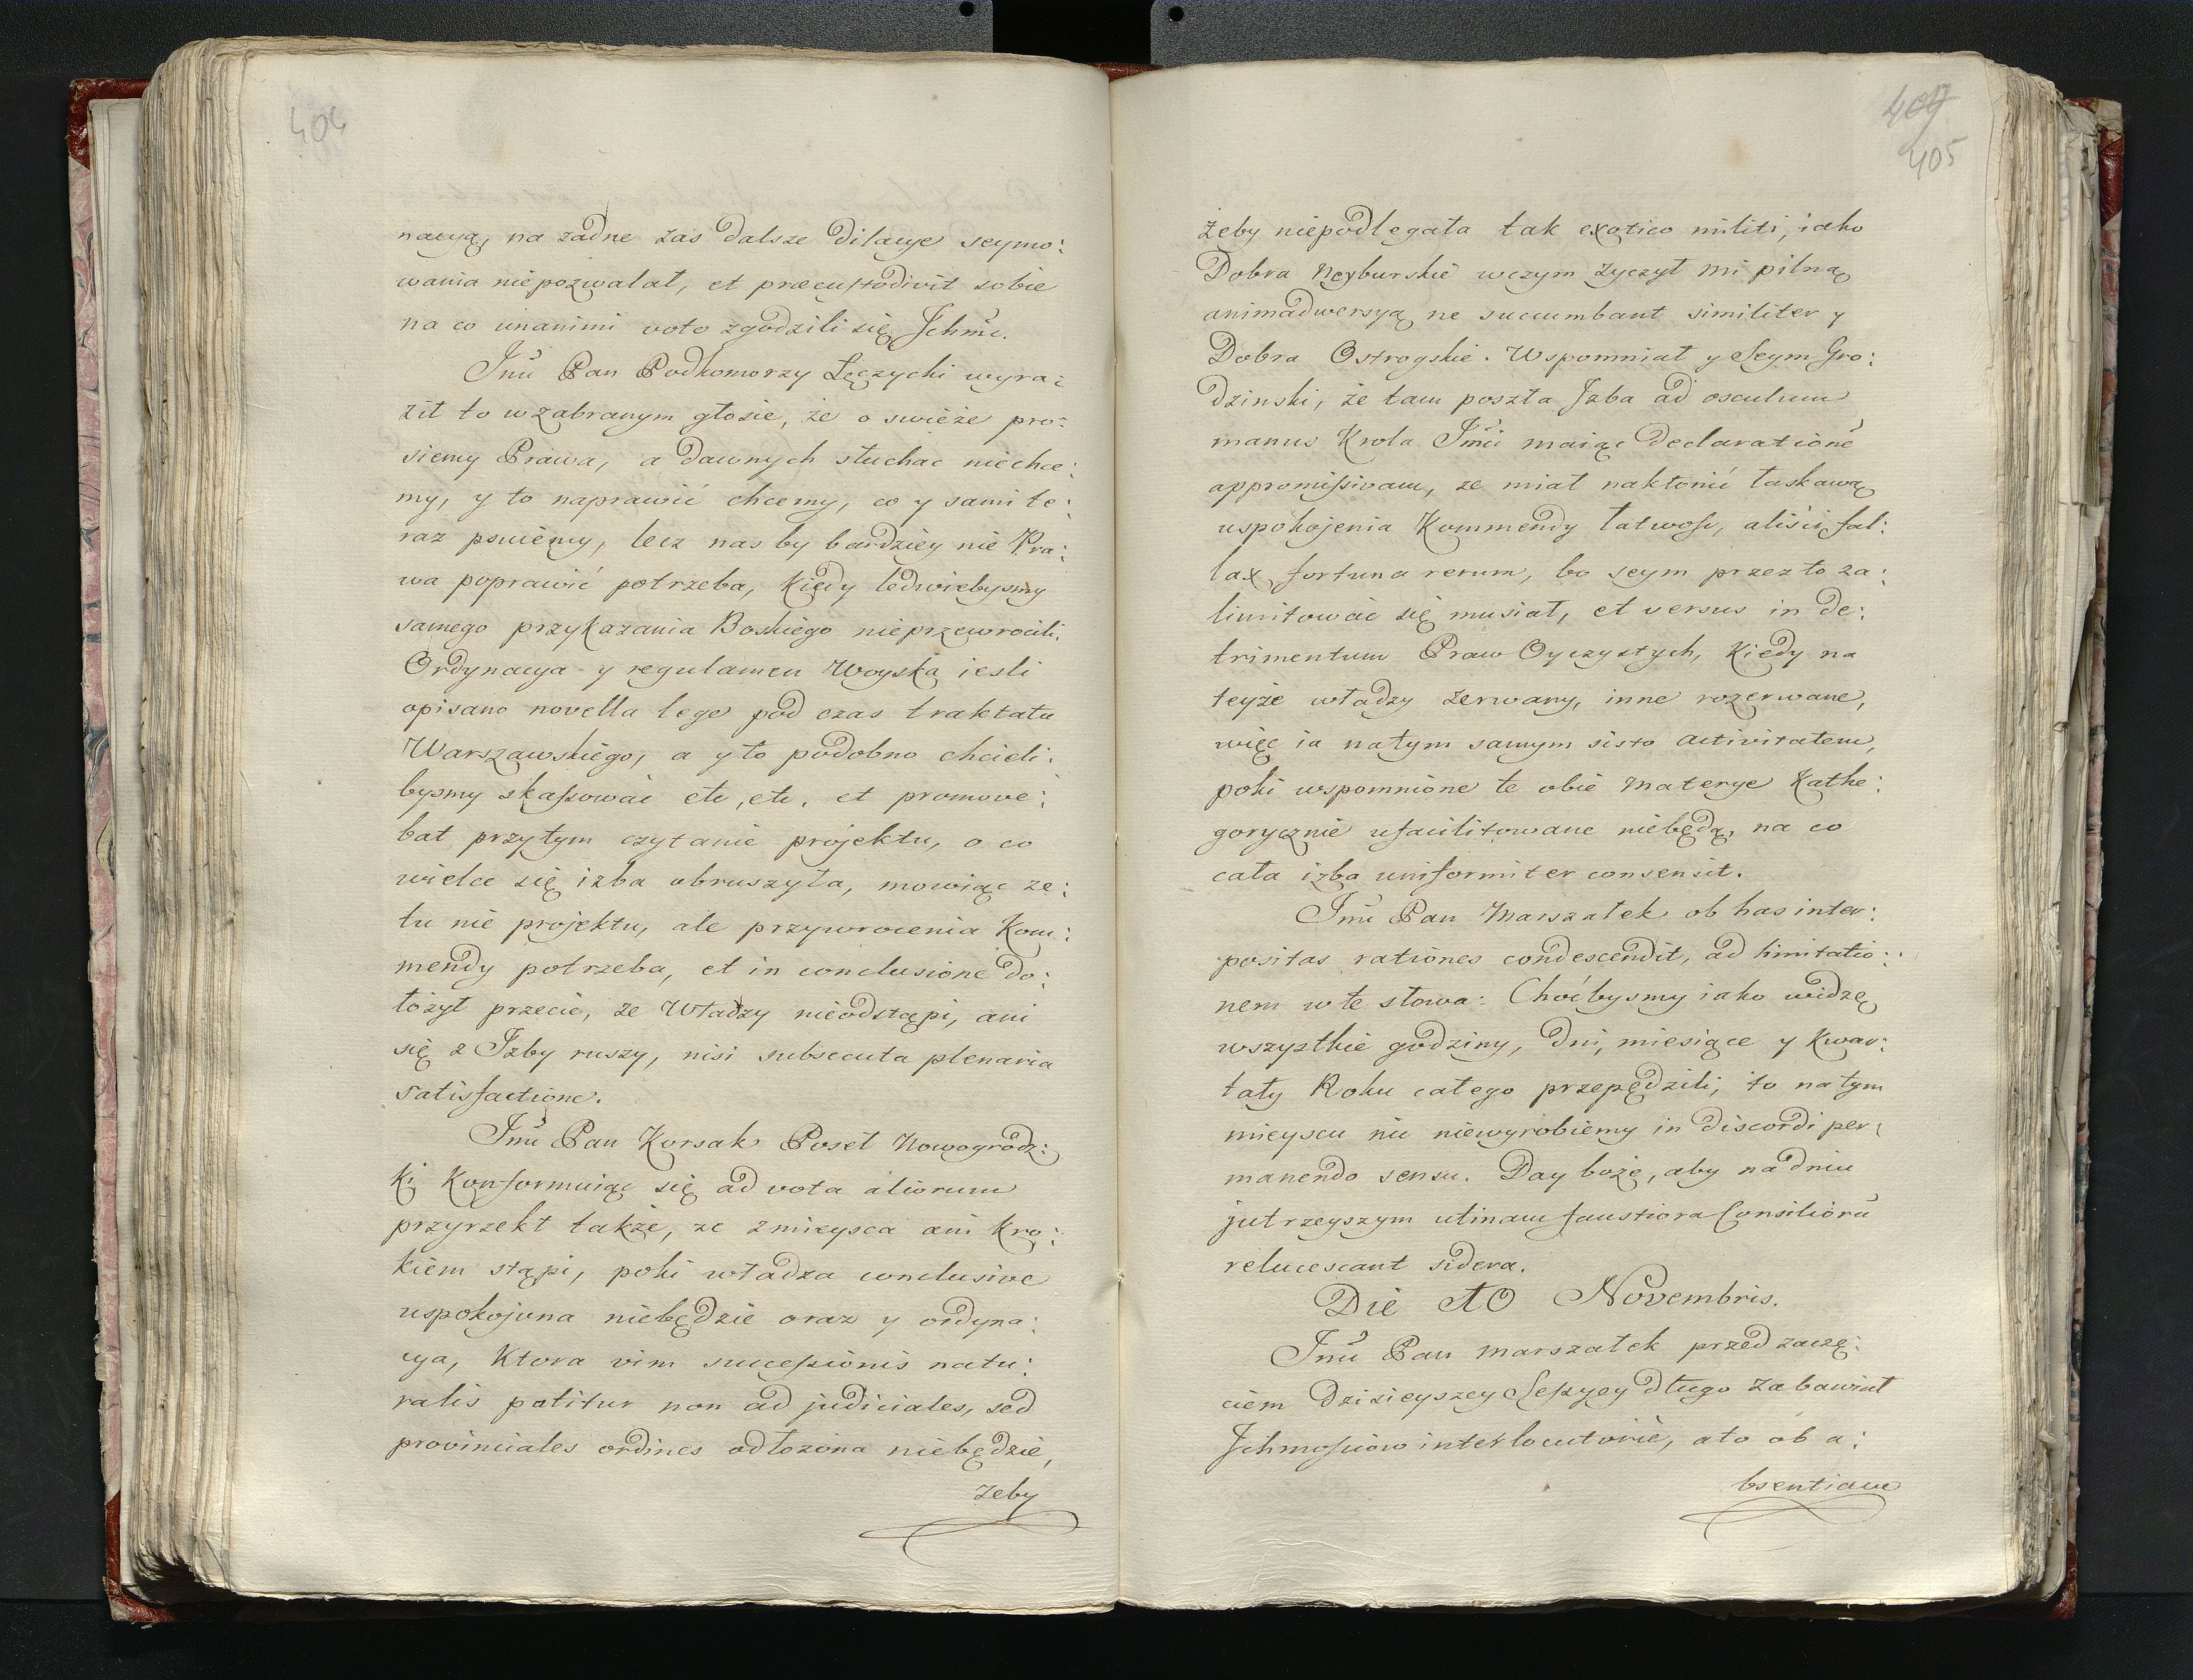 404
nacyą, na zadne zas dalsze dilacye seymo:
wania niepozwalał, et præcustodivit sobie
na co unanimi voto zgodzili się Jchmc.
Jmć Pan Podkomorzy Łęczycki wyra:
ził to w zabranym głosie, że o swieże pro:
siemy Prawa, a dawnych słuchac niechce:
my, y to naprawić chcemy, co y sami te:
raz psuiemy, lecz nas by bardziey nie Pra:
wa poprawić potrzeba, kiedy ledwiebysmy
samego przykazania Boskiego nieprzewrocili.
Ordynacya y regulamen Woyska iesli
opisano novella lege pod czas traktatu
Warszawskiego, a y to podobno chcieli:
bysmy skassować etc, etc. et promove:
bat przytym czytanie projektu, o co
wielce się izba obruszyła, mowiąc ze:
tu nie projektu, ale przywrocenia Kom:
mendy potrzeba, et in conclusione do:
łożył przecie, ze Władzy nieodstąpi, ani
się z Jzby ruszy, nisi subsecuta plenaria
satisfactione.
Jmć Pan Korsak Poseł Nowogrodz:
ki konformuiąc się ad vota aliorum
przyrzekł także, ze z mieysca ani kro:
kiem stąpi, poki władza conclusive
uspokojona niebędzie oraz y ordyna:
cya, ktora vim successionis natu:
ralis patitur non ad judiciales, sed
provinciales ordines odłozona niebędzie,
zeby
409
405
żeby niepodlegała tak exotico militi, iako
Dobra Neyburskie wczym zyczył mi pilną
animadwersyą ne succumbant similiter y
Dobra Ostrogskie. Wspomniał y Seym Gro:
dzinski, że tam poszła Jzba ad osculum
manus Krola Jmći maiąc declarationē
appromissivam, ze miał nakłonić łaskawą
uspokojenia Kommendy łatwość, aliści fal:
lax fortuna rerum, bo seym przez to za:
limitować się musiał, et versus in de:
trimentum Praw Oyczystych, kiedy na
teyże władzy zerwany, inne rozerwane,
więc ia natym samym sisto activitatem,
poki wspomnione te obie materye Kathe:
gorycznie ufacilitowane niebędą, na co
cała izba uniformiter consensit.
Jmć Pan Marszałek ob has inter:
positas rationes condescendit, ad limitatio:
nem w te słowa: Choćbysmy iako widzę
wszystkie godziny, dni, miesiące y kwar:
tały Roku całego przepędzili, to natym
mieyscu nic niewyrobiemy in discordi per:
manendo sensu. Day boże, aby nadniu
jutrzeyszym utinam faustiora Consiliorū
relucescant sidera.
Die 10 Novembris.
Jmć Pan marszałek przed zaczę:
ciem dzisieyszey Sessyey długo zabawiał
Jchmościow interlocutorie, ato ob a:
bsentiam